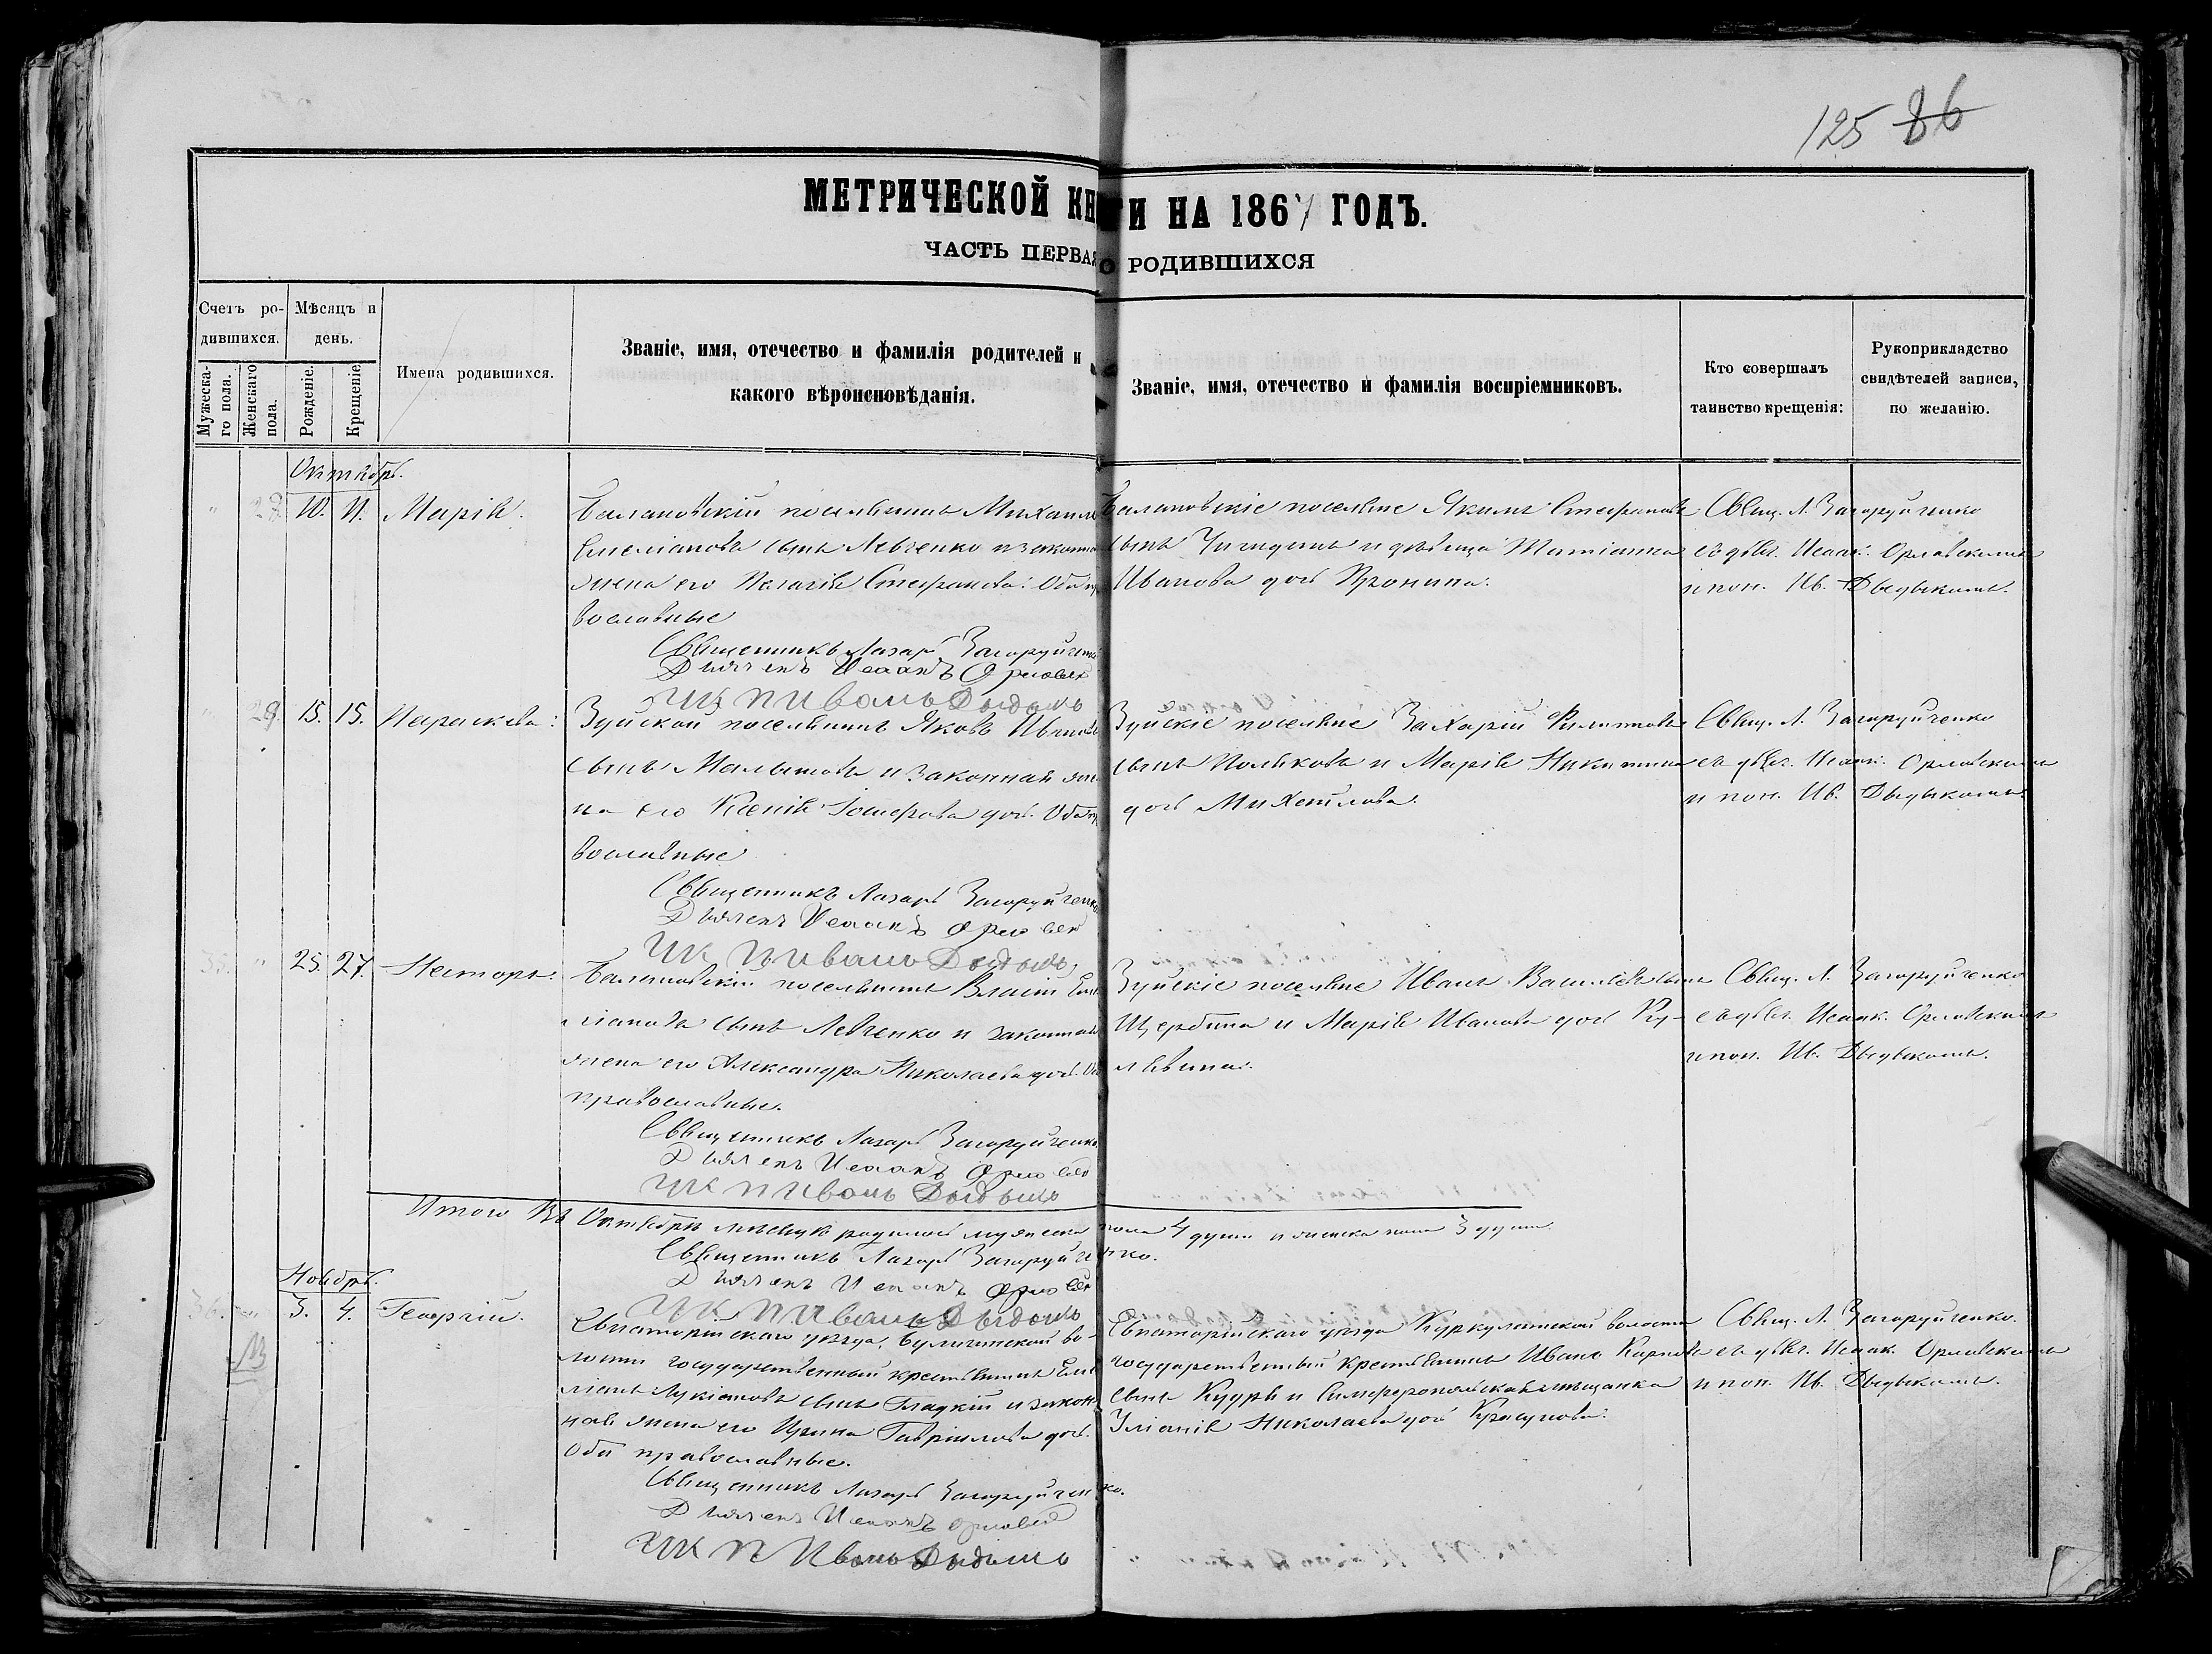 125 86
МЕТРИЧЕСКОЙ КН ГИ НА 1867 ГОДЪ.
ЧАСТЬ ПЕРВАЯ О РОДИВШИХСЯ
Счетъ ро-
дившихся.
Мужеска-
го пола.
Женскаго
пола.
Мѣсяцъ и
день.
Рожденіе.
Крещеніе.
Имена родившихся.
Званіе, имя, отечество и фамилія родителей и
какого вѣроисповѣданія.
Званіе, имя, отечество и фамилія воспріемниковъ.
Кто совершалъ
таинство крещенія:
Рукоприкладство
свидѣтелей записи,
по желанію.
Октябрь.
28 10. 11. Марія.
Балановскій поселянинъ Михаилъ
Емеліановъ сынъ Левченко и законна
жена его Пелагія Стефанова: Оба пра
вославные
Священникъ Лазарь Загоруйченко
Дьячекъ Исаакъ Орловск
Балановскіе поселяне Якимъ Стефановъ
сынъ и дѣвица Татіанна
Иванова дочь Пронина.
Свящ. Л. Загоруйченко
съ дьяч. Исаак. Орловскимъ
и пон. Ив. Дыдыкомъ.
29. 15. 15. Параскева:
Зуйскій поселянинъ Яковъ Ивановъ
сынъ Малышовъ и законная же
на его Ксенія Іосифова доч. Оба пра
вославные
Священникъ Лазарь Загоруйченко
Дьячекъ Исаакъ Орловск
Зуйскіе поселяне Захарій Филиповъ
сынъ Поляковъ и Марія Никитина
дочь Михайлова.
Свящ. Л. Загоруйченко
съ дьяч. Исаак. Орловскимъ
и пон. Ив. Дыдыкомъ.
35. " 25. 27. Несторъ.
Балановскій поселянинъ Власій Еме
ліановъ сынъ Левченко и законная
жена его Александра Николаева доч. Об
православные.
Священникъ Лазарь Загоруйченко
Дьячекъ Исаакъ Орловск
Зуйскіе поселяне Иванъ Васильевъ сынъ
Щербина и Марія Иванова дочь Ку-
лѣвина.
Свящ. Л. Загоруйченко
съ дьяч. Исаак. Орловскимъ
и пон. Ив. Дыдыкомъ.
Итого въ Октябрѣ мѣсяцѣ родилось мужеска пола 4 души и женска пола 3 души.
Священникъ Лазарь Загоруйченко.
Дьячекъ Исаакъ Орловск
Ноябрь.
36. " 3. 4. Георгій.
Евпаторійскаго уѣзда, во-
лости государственный крестьянинъ Еме
ліанъ Лукіановъ сынъ Гладкій и закон
ная жена его Ирина Гаврилова доч.
Оба православные.
Священникъ Лазарь Загоруйченко.
Дьячекъ Исаакъ Орловск
Евпаторійскаго уѣзда Куркулатской волости
государственный крестьянинъ Иванъ Карповъ
сынъ Кудря и Симферопольская мѣщанка
Уліанія Николаева доч Красунова.
Свящ. Л. Загоруйченко.
съ дьяч. Исаак. Орловскимъ
и пон. Ив. Дыдыкомъ.